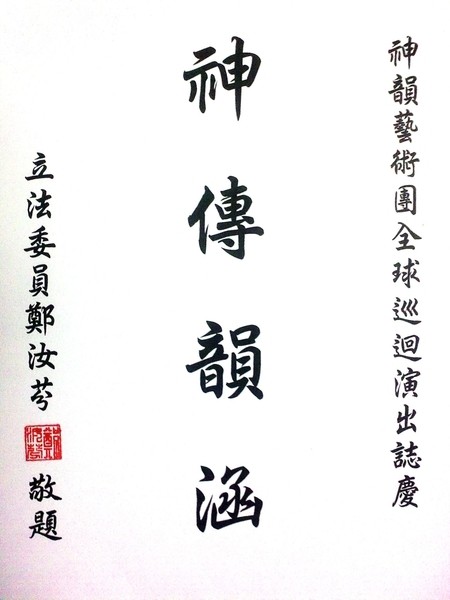 神韻藝術團全球巡迴演出誌慶
神傳韻涵
立法委員鄭汝芬
敬題